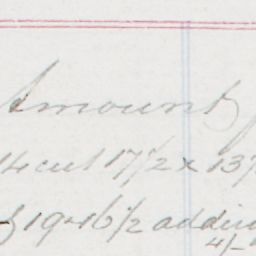 Amount
14 cut 17 1/2 x 13
19 + 16 1/2 adding
4/-